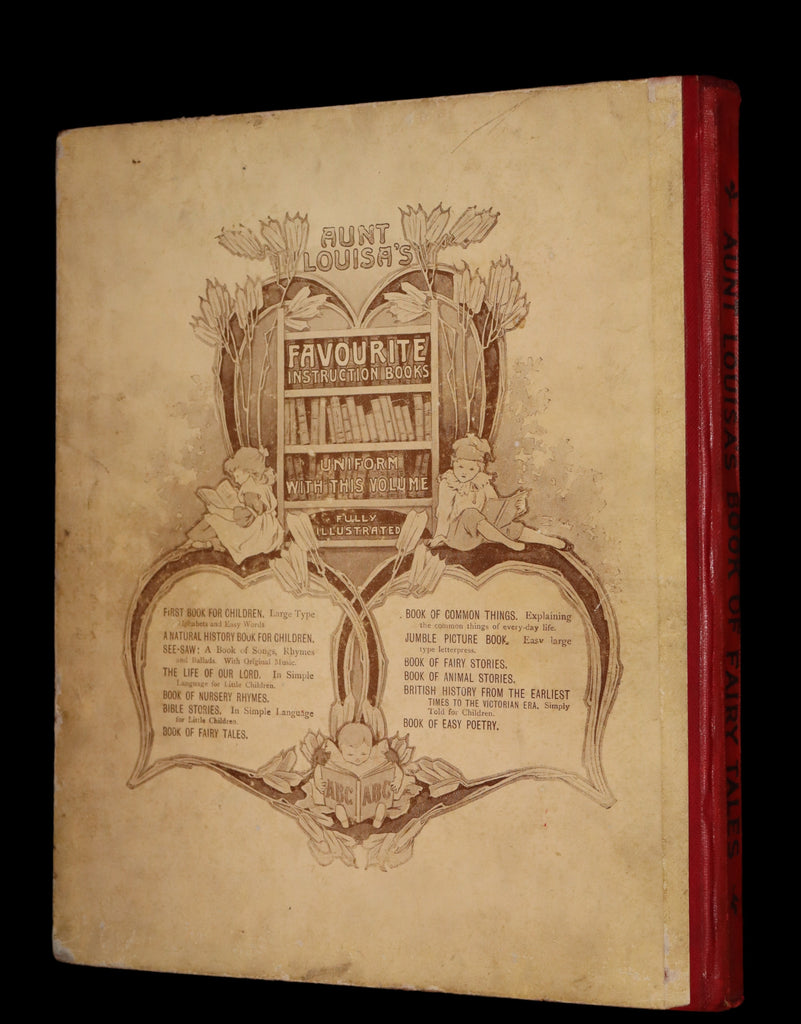 AUNT
LOUISA'S
FAVOURITE
INSTRUCTION BOOKS
UNIFORM
WITH THIS VOLUME
FULLY
ILLUSTRATED
FIRST BOOK FOR CHILDREN. Large Type
Alphabets and Easy Words
A NATURAL HISTORY BOOK FOR CHILDREN.
SEE-SAW: A Book of Songs, Rhymes
and Ballads. With Original Music.
THE LIFE OF OUR LORD. In Simple
Language for Little Children.
BOOK OF NURSERY RHYMES.
BIBLE STORIES. In Simple Language
for Little Children.
BOOK OF FAIRY TALES.
BOOK OF COMMON THINGS. Explaining
the common things of every-day life.
JUMBLE PICTURE BOOK. Easy large
type letterpress.
BOOK OF FAIRY STORIES.
BOOK OF ANIMAL STORIES.
BRITISH HISTORY FROM THE EARLIEST
TIMES TO THE VICTORIAN ERA. Simply
Told for Children.
BOOK OF EASY POETRY.
ABC ABC
AUNT LOUISAS BOOK OF FAIRY TALES